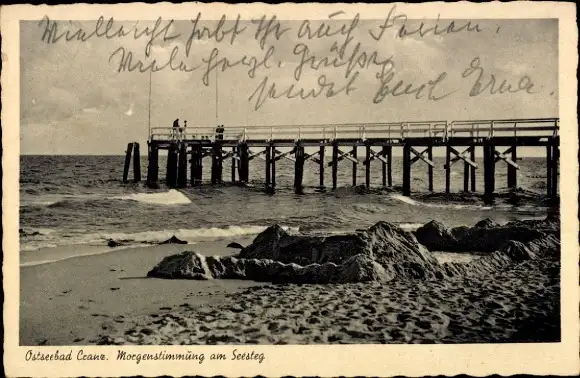 Vielleicht habt Ihr auch Ferien.
Viele herzl. Grüße
sendet Euch Erna.
Ostseebad Cranz. Morgenstimmung am Seesteg